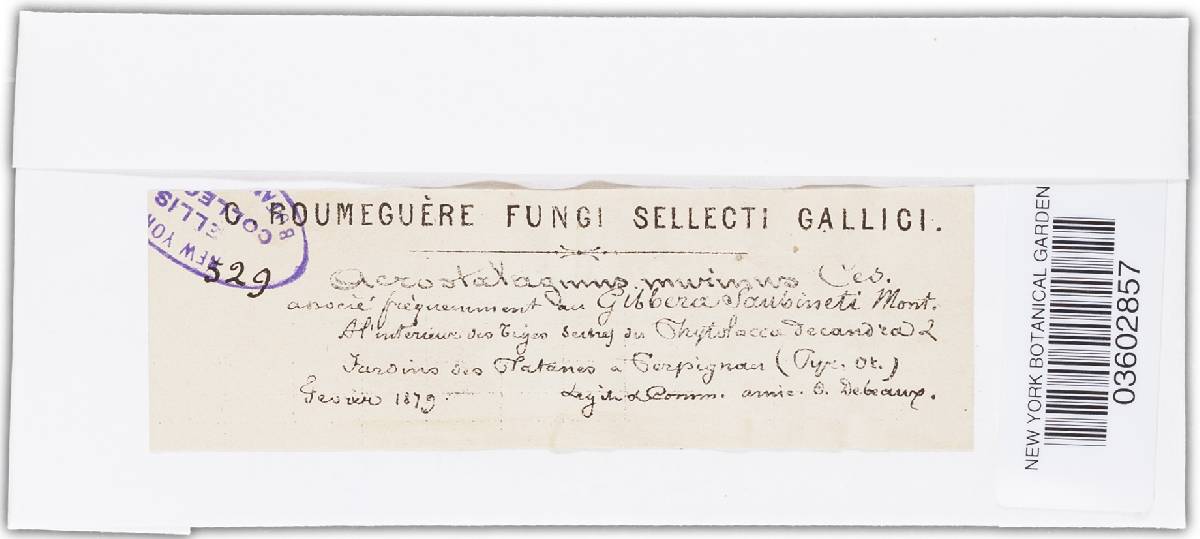 C. ROUMEGUÈRE FUNGI SELLECTI GALLICI.
NEW YORK
ELLIS
COLLEC
529
Acrostalagmus murinus Ces.
associé fréquemment au Gibbera Saubineti Mont.
A l'interieur des tiges seches du Phytolacca decandra L
Jardins des Platanes a Perpignan (Pyr. Or.)
Fevrier 1879
Legit & Comm. amic. O. Debeaux.
NEW YORK BOTANICAL GARDEN
03602857